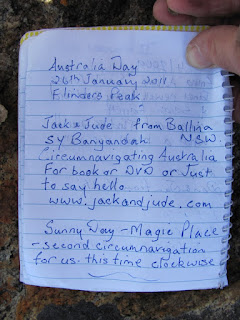 Australia Day
26th January 2011
Flinders Peak
Jack & Jude from Ballina
SY Banyandah NSW.
Circumnavigating Australia
For book or DVD or Just
to say hello
www.jackandjude.com
Sunny Day - Magic Place
- second circumnavigation
for us. this time clockwise